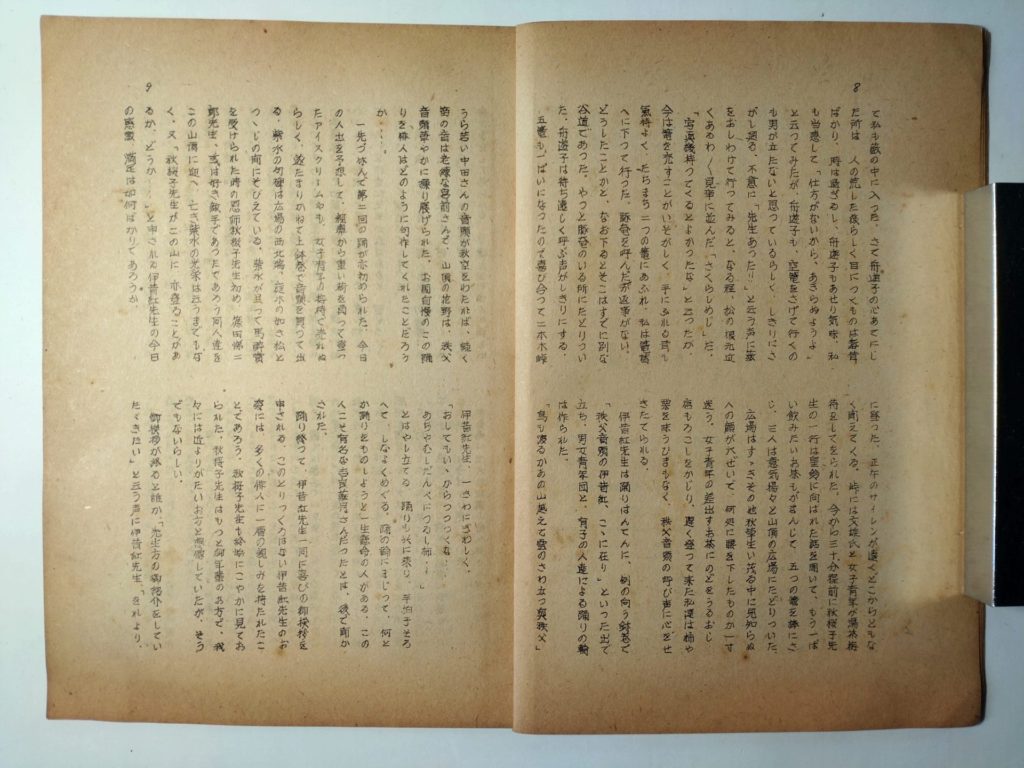 8
て私も藪の中に入った。さて舟遊子の心あてにし
た所は、人の荒した後らしく目につくものは毒茸
ばかり、時は過ぎるし、舟遊子もあせり気味、私
も当惑して「仕方がないから、あきらめようよ」
と云ってみたが、舟遊子も、空籠をさげて行くの
も男が立たないと思っているらしく、しきりにさ
がし廻る。不意に、「先生あった!!」と云う声に藪
をおしわけて行ってみると、なる程、松の根元に
くあるわ〳〵見事に並んだ「さくらしめじ」だ。
「写真機持ってくるとよかったな」と云ったが、
今は茸を先すことがいそがしく、手にふれる茸も
気持よく、たちまち二つの籠にあふれ、私は
へに下って行った。豚壱を呼んだが返事がない。
どうしたことかと、なお下るとそこはすでに別な
谷道であった。やっと豚壱のいる所にたどりつい
た。舟遊子は待ち遠しく呼ぶ声がしきりにする。
五籠も一ぱいになったので喜び合って二本木峠
に登った。正午のサイレンが遠くどこからともな
く聞えてくる。時には文雄氏と女子青年が湯茶接
待をしておられた。今から三十分程前に秋桜子先
生の一行は皇鈴に向はれた話を聞いて、もう一ぱ
い飲みたいお茶もがまんして、五つの籠を棒にさ
し、三人は意気揚々と山頂の広場にたどりついた。
広場はすゝきその他秋草生い茂る中に見知らぬ
人の顔が大ぜいて、何処に腰を下したものか一寸
迷う。女子青年の差出すお茶にのどをうるおし
唐もろこしをかじり、遅く登って来た私達は柿や
栗を味うひまもなく、秩父音頭の呼び声に心をせ
きたてられる。
伊昔紅先生は踊りはんてんに、例の向う鉢巻で
「秩父音頭の伊昔紅、こゝに在り」といった出で
立ち、男女青年団と、有子の人達による踊りの輪
は作られた。
「鳥も渡るかあの山越えて雲のさわ立つ奥秩父」
9
うら若い中田さんの音頭が秋空をわたれば、続く
笛の音は老練な宮前さんで、山頂の花野は、秩父
音頭華やかに繰り展げられた。お国自慢のこの踊
りを、俳人はどのように句作してくれたことだろう
か…
一先づ休んで第二回の踊が亦初められた。今日
の人出を予想して、軽車から重い箱を負って登っ
たアイスクリームやも、女子青年の接待で売れぬ
らしく、並たまりかねて上鉢巻で音頭を買って出
る。紫水の句碑は広場の西北端、庭木の如き松と
つゝじの間にそびえている。紫水が且って馬酔賞
を受けられた時の恩師秋桜子先生初め、篠田悌二
郎先生、或は好き敵手であったであろう同人達を
この山頂に迎へ、亡き紫水の光栄は云うまでもな
く、又「秋桜子先生がこの山に、亦登ることがあ
るか、どうか……」と申された伊昔紅先生の今日
の感激、満足は如何ばかりであろうか。
伊昔紅先生、一さわにさわしく、
「おしてもいいからつつつくな……
あちやむしだんべにつるし柿……」
とはやし立てる。踊りの次に乗り、手拍子そろ
へて、しなよくめぐる。踊の輪にまじって、何と
か踊りをものしようと一生懸命の人がある。この
人こそ有名な石田波郷さんだったとは、後で聞か
された。
踊り終って、伊昔紅先生一同に喜びの御挨拶を
申される。このとりつくろはない伊昔紅先生のお
姿には、多くの俳人に一層の親しみを持たれたこ
とであろう。秋桜子先生も終始にこやかに見てお
られた。秋桜子先生はもっと御年輩のお方で、我
々には近よりがたいお方と想像していたが、そう
でもないらしい。
御挨拶が終ると誰か「先生方の御紹介をしてい
たゞきたい」と云う声に伊昔紅先生「それより、